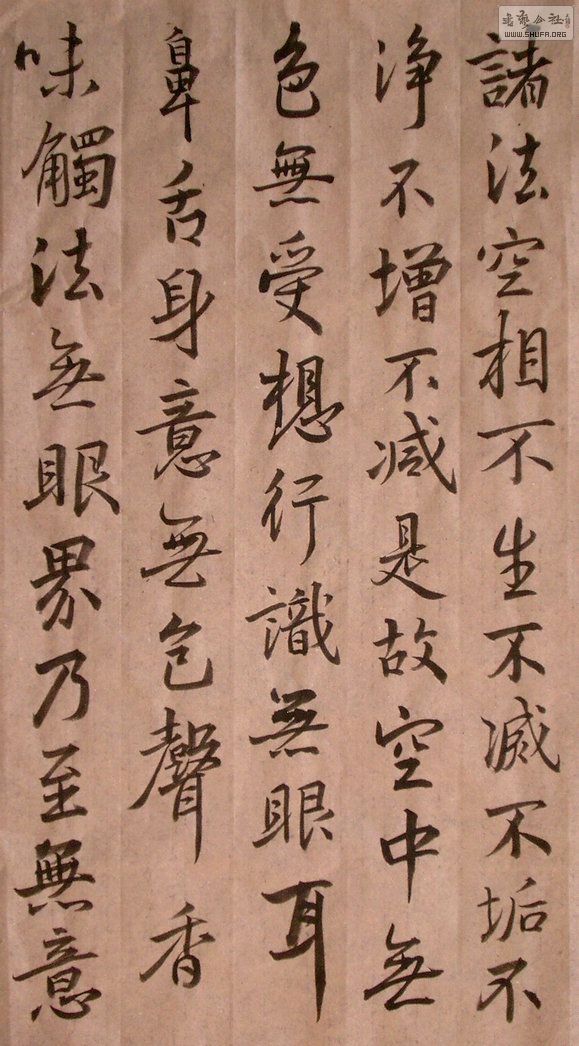 諸法空相不生不滅不垢不
淨不增不減是故空中無
色無受想行識無眼耳
鼻舌身意無色聲香
味觸法無眼界乃至無意
WWW.SHUFA.ORG